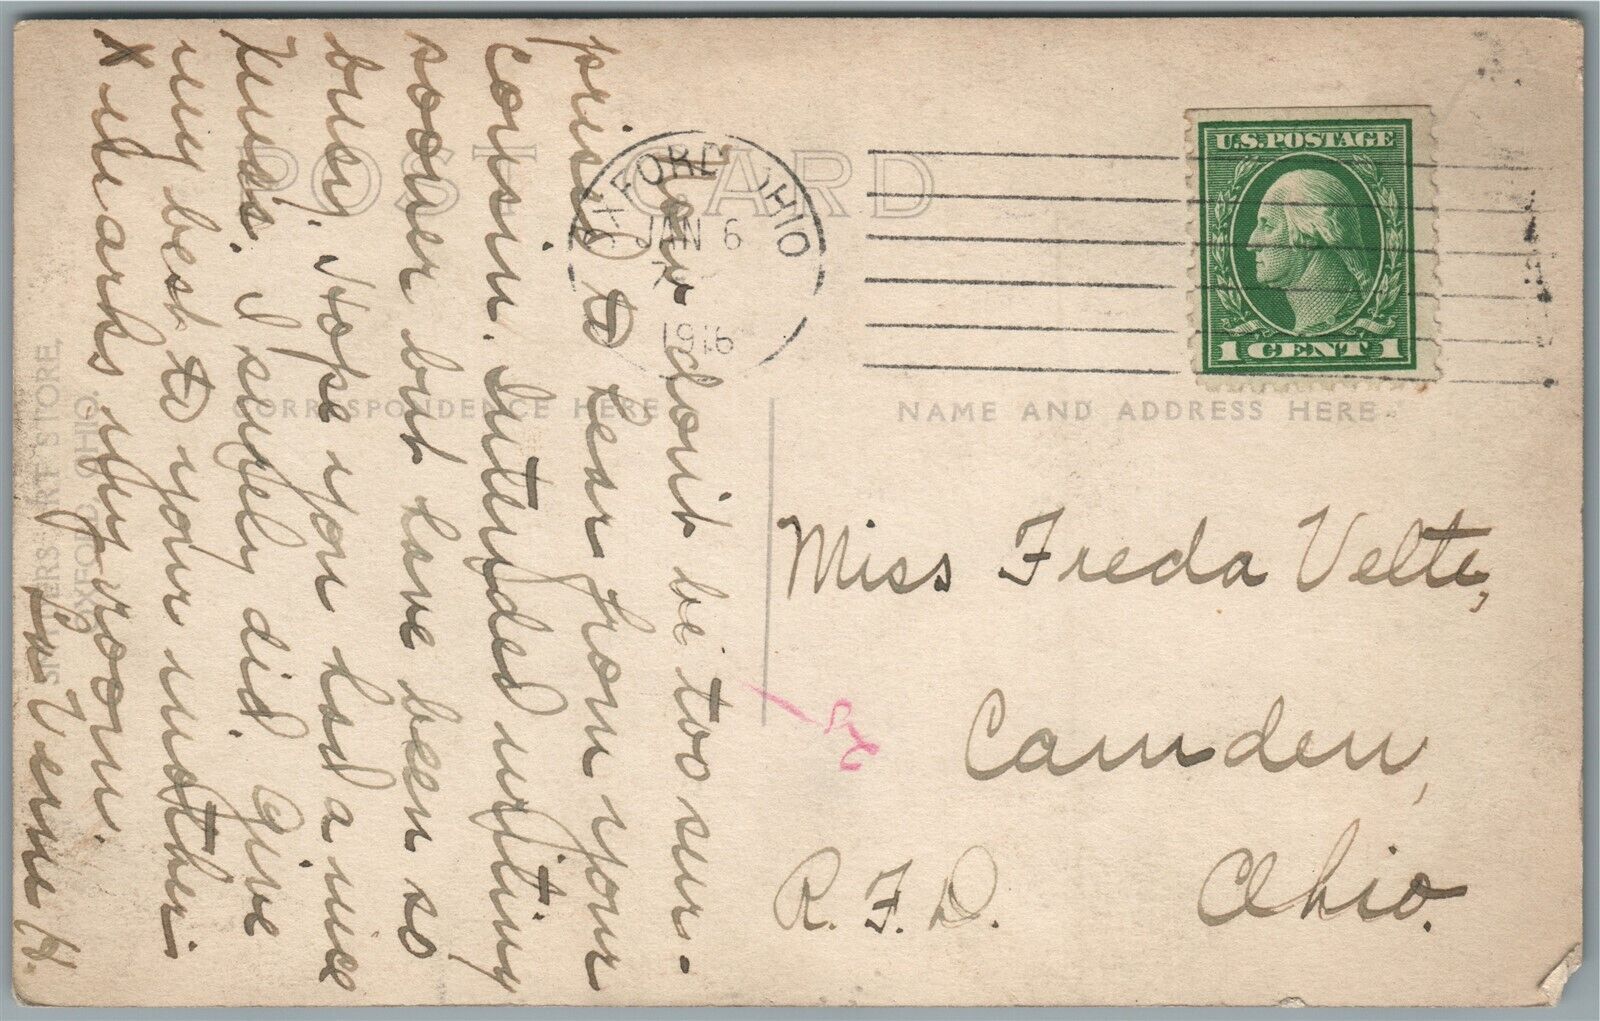 POST CARD
OXFORD, OHIO
JAN 6
1916
U.S. POSTAGE
1 CENT 1
CORRESPONDENCE HERE
NAME AND ADDRESS HERE
Now don't be too sur-
prised to hear from your
cousin. Intended writing
sooner but have been so
busy. Hope you had a nice
Xmas. I surely did. Give
my best to your mother
X marks my room.
La Verne H.
Miss Freda Velte,
Camden,
Ohio.
R.F.D.
SNYDER'S ART STORE,
OXFORD, OHIO.